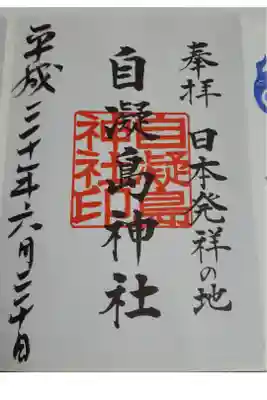 奉拝 日本発祥の地
自凝島神社
自凝島
神社印
平成三十年六月二十日